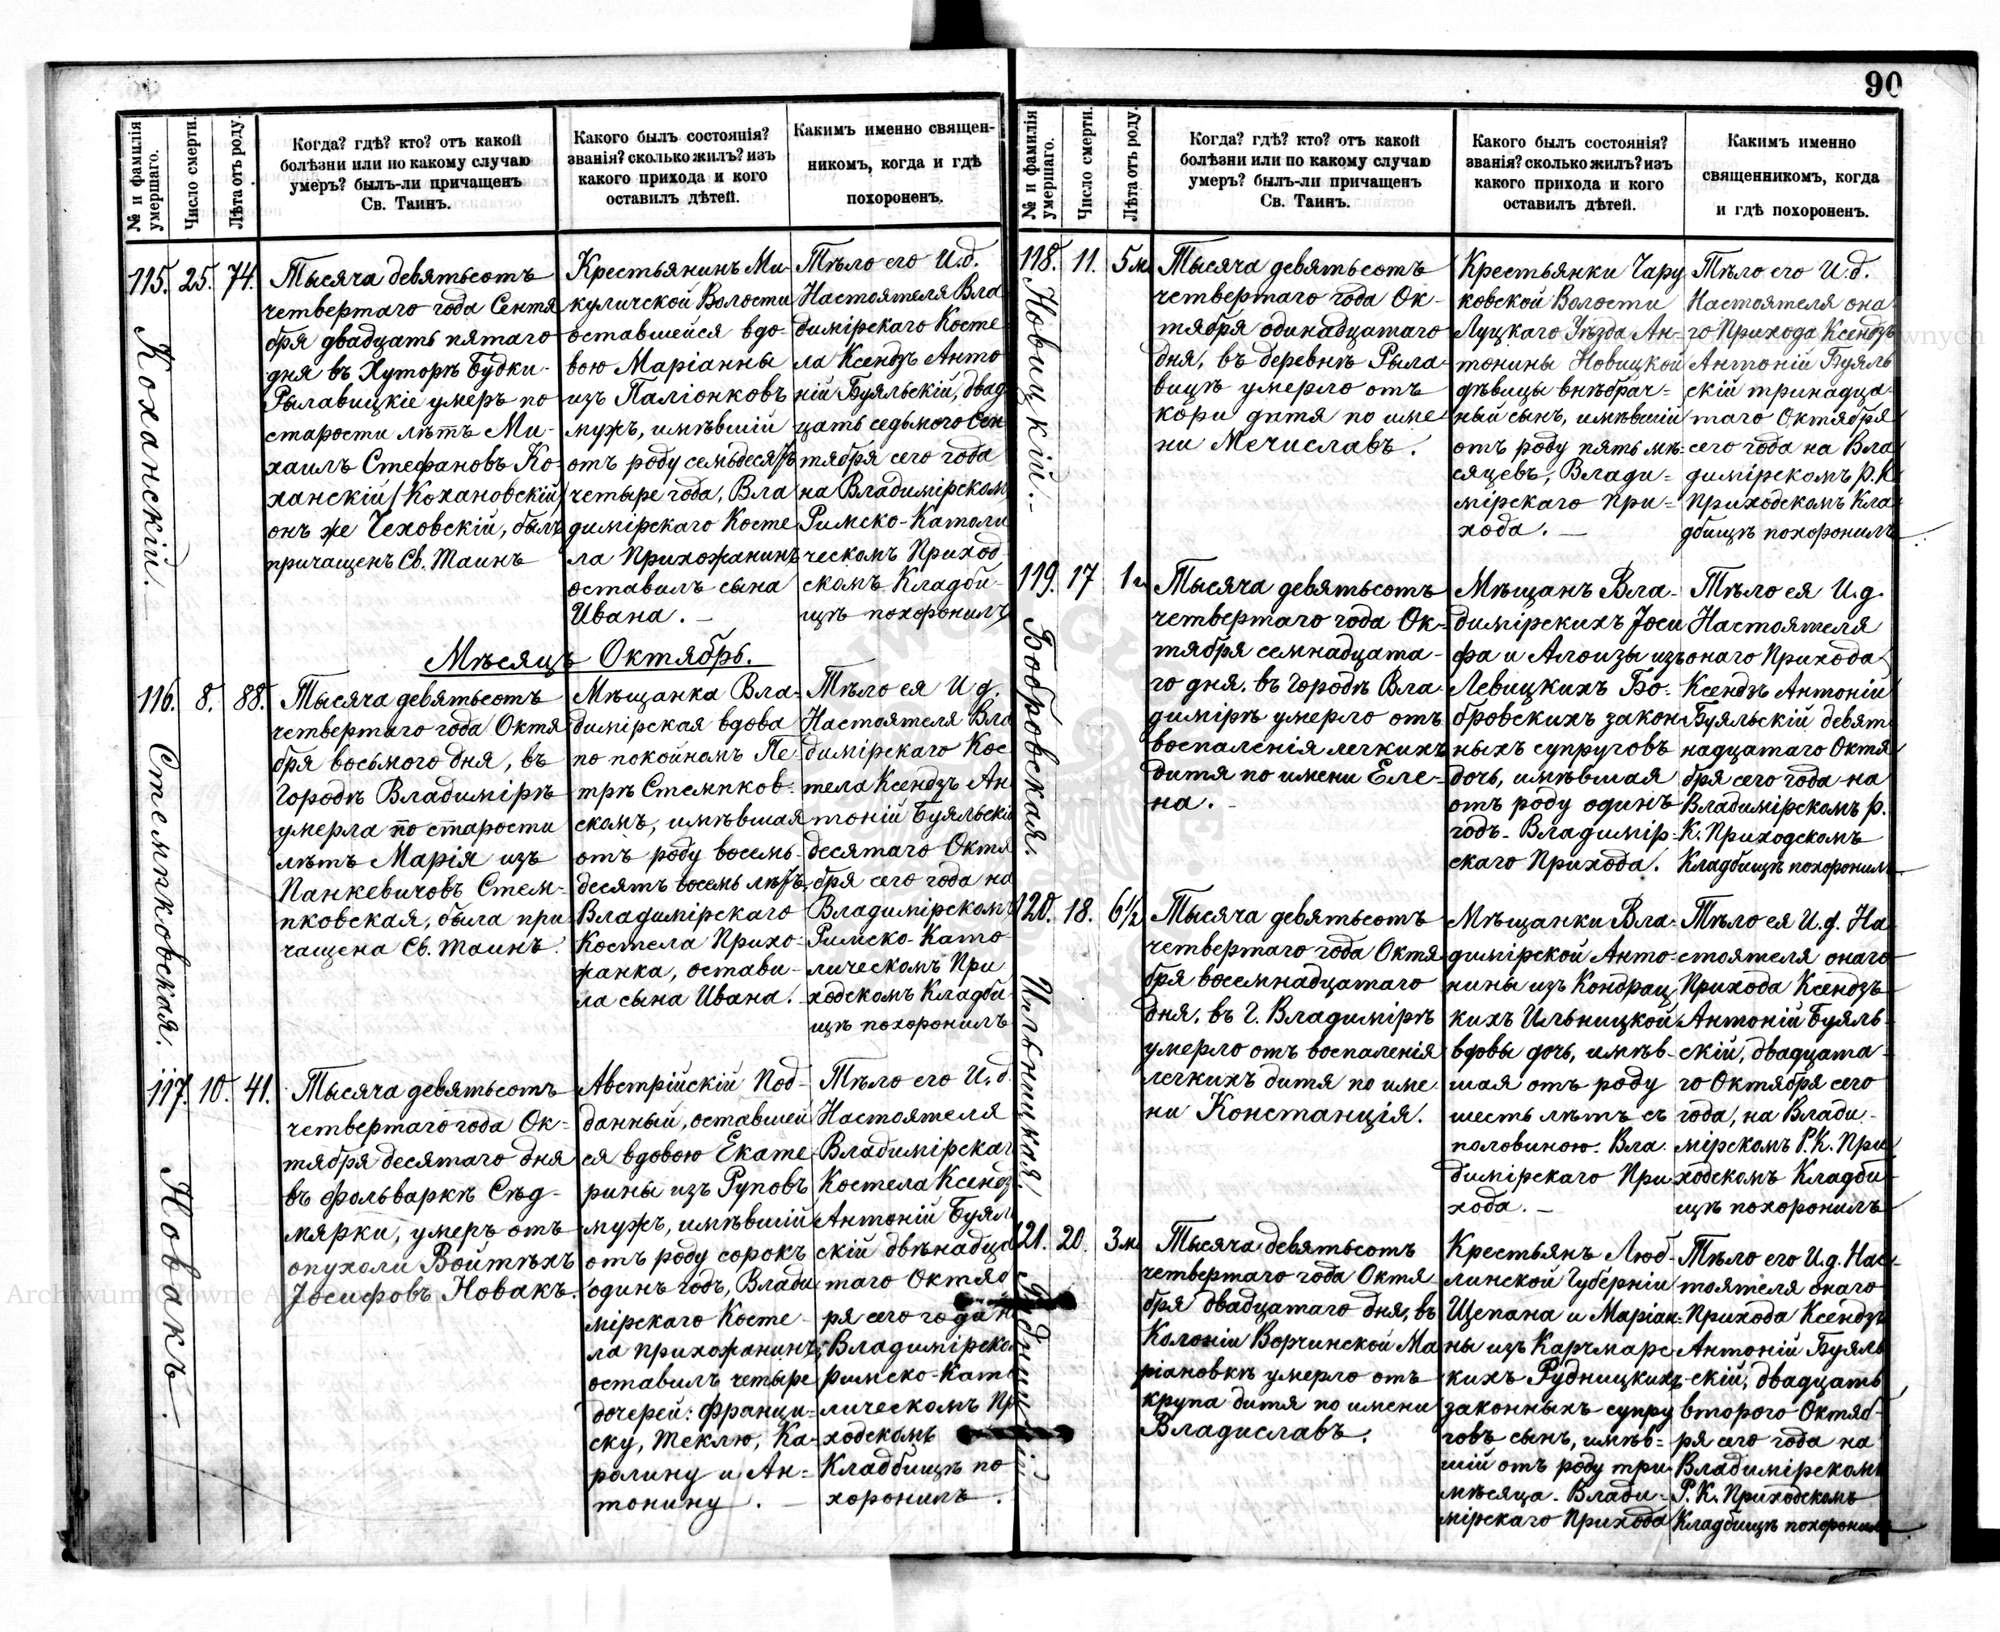 90
№ и фамилія умершаго.
Число смерти.
Лѣта отъ роду.
Когда? гдѣ? кто? отъ какой
болѣзни или по какому случаю
умеръ? былъ-ли причащенъ
Св. Таинъ.
Какого былъ состоянія?
званія? сколько жилъ? изъ
какого прихода и кого
оставилъ дѣтей.
Какимъ именно священ-
никомъ, когда и гдѣ
похороненъ.
115.
Коханскій.
25.
74.
Тысяча девятьсотъ
четвертаго года Сентя
бря двадцать пятаго
дня въ Хуторѣ Будки-
Рылавицкіе умеръ по
старости лѣтъ Ми-
хаилъ Стефановъ Ко-
ханскій /Кохановскій/
онъ же Чеховскій, былъ
причащенъ Св. Таинъ
Крестьянинъ Ми-
куличской Волости
оставшейся вдо-
вою Маріанны
изъ Паліонковъ
мужъ, имѣвшій
отъ роду семьдесятъ
четыре года, Вла
димірскаго Косте
ла Прихожанинъ
оставилъ сына
Ивана. —
Тѣло его И.д.
Настоятеля Вла
димірскаго Косте
ла Ксендзъ Анто
ній Буяльскій, двад
цать седьмого Сен
тября сего года
на Владимірскомъ
Римско-Католи
ческомъ Приход
скомъ Кладби-
щѣ похоронилъ
Мѣсяцъ Октябрь.
116.
Стемпковская.
8.
88.
Тысяча девятьсотъ
четвертаго года Октя
бря восьмого дня, въ
Городѣ Владимірѣ
умерла по старости
лѣтъ Марія изъ
Панкевичовъ Стем-
пковская, была при
чащена Св. Таинъ.
Мѣщанка Вла-
димірская вдова
по покойномъ Пе-
трѣ Стемпков-
скомъ, имѣвшая
отъ роду восемь-
десятъ восемь лѣтъ,
Владимірскаго
Костела Прихо-
жанка, остави-
ла сына Ивана.
Тѣло ея И.д.
Настоятеля Вла
димірскаго Кос
тела Ксендзъ Ан
тоній Буяльскій
десятаго Октя
бря сего года на
Владимірскомъ
Римско-Като
лическомъ При
ходскомъ Кладби
щѣ похоронилъ
117.
Новакъ.
10.
41.
Тысяча девятьсотъ
четвертаго года Ок-
тября десятаго дня
въ фольваркѣ Сѣд-
мярки, умеръ отъ
опухоли Войтѣхъ
Іосифовъ Новакъ.
Австрійскій Под-
данный, оставшей
ся вдовою Екате
рины изъ Руповъ
мужъ, имѣвшій
отъ роду сорокъ
одинъ годъ, Влади
мірскаго Косте-
ла прихожанинъ;
оставилъ четыре
дочерей: Франци-
ску, Теклю, Ка-
ролину и Ан-
тонину. —
Тѣло его И.д.
Настоятеля
Владимірскаг
Костела Ксендз
Антоній Буял
скій двѣнадца
таго Октяб
ря сего года н
Владимірско
римско-Като
лическомъ Пр
ходскомъ
Кладбищѣ по
хоронилъ.
№ и фамилія умершаго.
Число смерти.
Лѣта отъ роду.
Когда? гдѣ? кто? отъ какой
болѣзни или по какому случаю
умеръ? былъ-ли причащенъ
Св. Таинъ.
Какого былъ состоянія?
званія? сколько жилъ? изъ
какого прихода и кого
оставилъ дѣтей.
Какимъ именно
священникомъ, когда
и гдѣ похороненъ.
118.
Новицкій.
11.
5 м
Тысяча девятьсотъ
четвертаго года Ок-
тября одинадцатаго
дня, въ деревнѣ Рыла-
вицѣ умерло отъ
кори дитя по име
ни Мечиславъ.
Крестьянки Чару
ковской Волости
Луцкаго Уѣзда Ан-
тонины Новицкой
дѣвицы внѣбрач-
ный сынъ, имѣвшій
отъ роду пять мѣ-
сяцевъ, Влади-
мірскаго При-
хода. —
Тѣло его И.д.
Настоятеля она
го Прихода Ксендзъ
Антоній Буяль
скій тринадца-
таго Октября
сего года на Вла
димірскомъ Р.К.
Приходскомъ Кла-
дбищѣ похоронилъ
119.
Бобровская.
17
1 г.
Тысяча девятьсотъ
четвертаго года Ок-
тября семнадцата-
го дня, въ Городѣ Вла-
димірѣ умерло отъ
воспаленія легкихъ
дитя по имени Еле-
на. -
Мѣщанъ Вла-
димірскихъ Іоси
фа и Алоизы изъ
Левицкихъ Бо-
бровскихъ закон-
ныхъ супруговъ
дочь, имѣвшая
отъ роду одинъ
годъ. Владимір-
скаго Прихода.
Тѣло ея И.д.
Настоятеля
онаго Прихода
Ксендзъ Антоній
Буяльскій девят
надцатаго Октя
бря сего года на
Владимірскомъ Р.
К. Приходскомъ
Кладбищѣ похоронилъ
120.
Ильницкая.
18.
6½
Тысяча девятьсотъ
четвертаго года Октя-
бря восемнадцатаго
дня, въ Г. Владимірѣ
умерло отъ воспаленія
легкихъ дитя по име
ни Констанція.
Мѣщанки Вла-
димірской Анто-
нины изъ Кондрац
кихъ Ильницкой
вдовы дочь, имѣв-
шая отъ роду
шесть лѣтъ съ
половиною. Вла-
димірскаго При
хода. —
Тѣло ея И.д. На-
стоятеля онаго
Прихода Ксендзъ
Антоній Буяль-
скій, двадцата-
го Октября сего
года, на Влади-
мірскомъ Р.К. При
ходскомъ Кладби
щѣ похоронилъ
121.
Рудницкій
20.
3 м
Тысяча девятьсотъ
четвертаго года Октя
бря двадцатаго дня, въ
Колоніи Ворчинской Ма
ріановкѣ умерло отъ
крупа дитя по имени
Владиславъ.
Крестьянъ Люб-
линской Губерніи
Щепана и Маріан-
ны изъ Карчмарс
кихъ Рудницкихъ
законныхъ супру
говъ сынъ, имѣв-
шій отъ роду три
мѣсяца. Влади-
мірскаго Прихода
Тѣло его И.д. Нас-
тоятеля онаго
Прихода Ксендзъ
Антоній Буяль
скій, двадцать
второго Октяб-
ря сего года на
Владимірскомъ
Р.К. Приходскомъ
Кладбищѣ похоронилъ